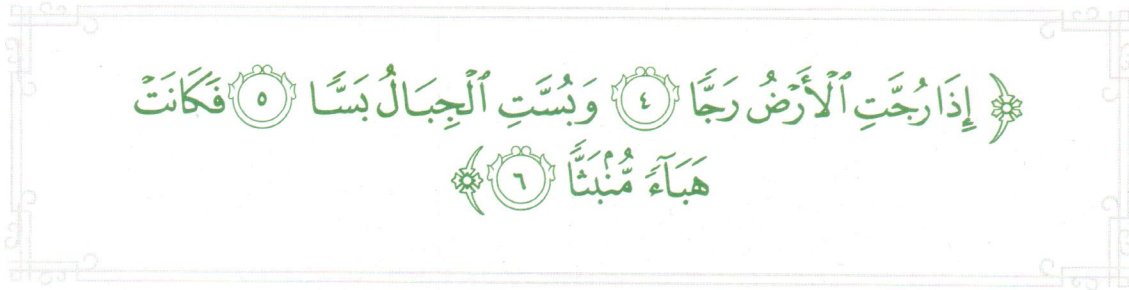 ﴿ إِذَا رُجَّتِ ٱلْأَرْضُ رَجًّا ٤ وَبُسَّتِ ٱلْجِبَالُ بَسًّا ٥ فَكَانَتْ
هَبَآءً مُّنۢبَثًّا ٦ ﴾